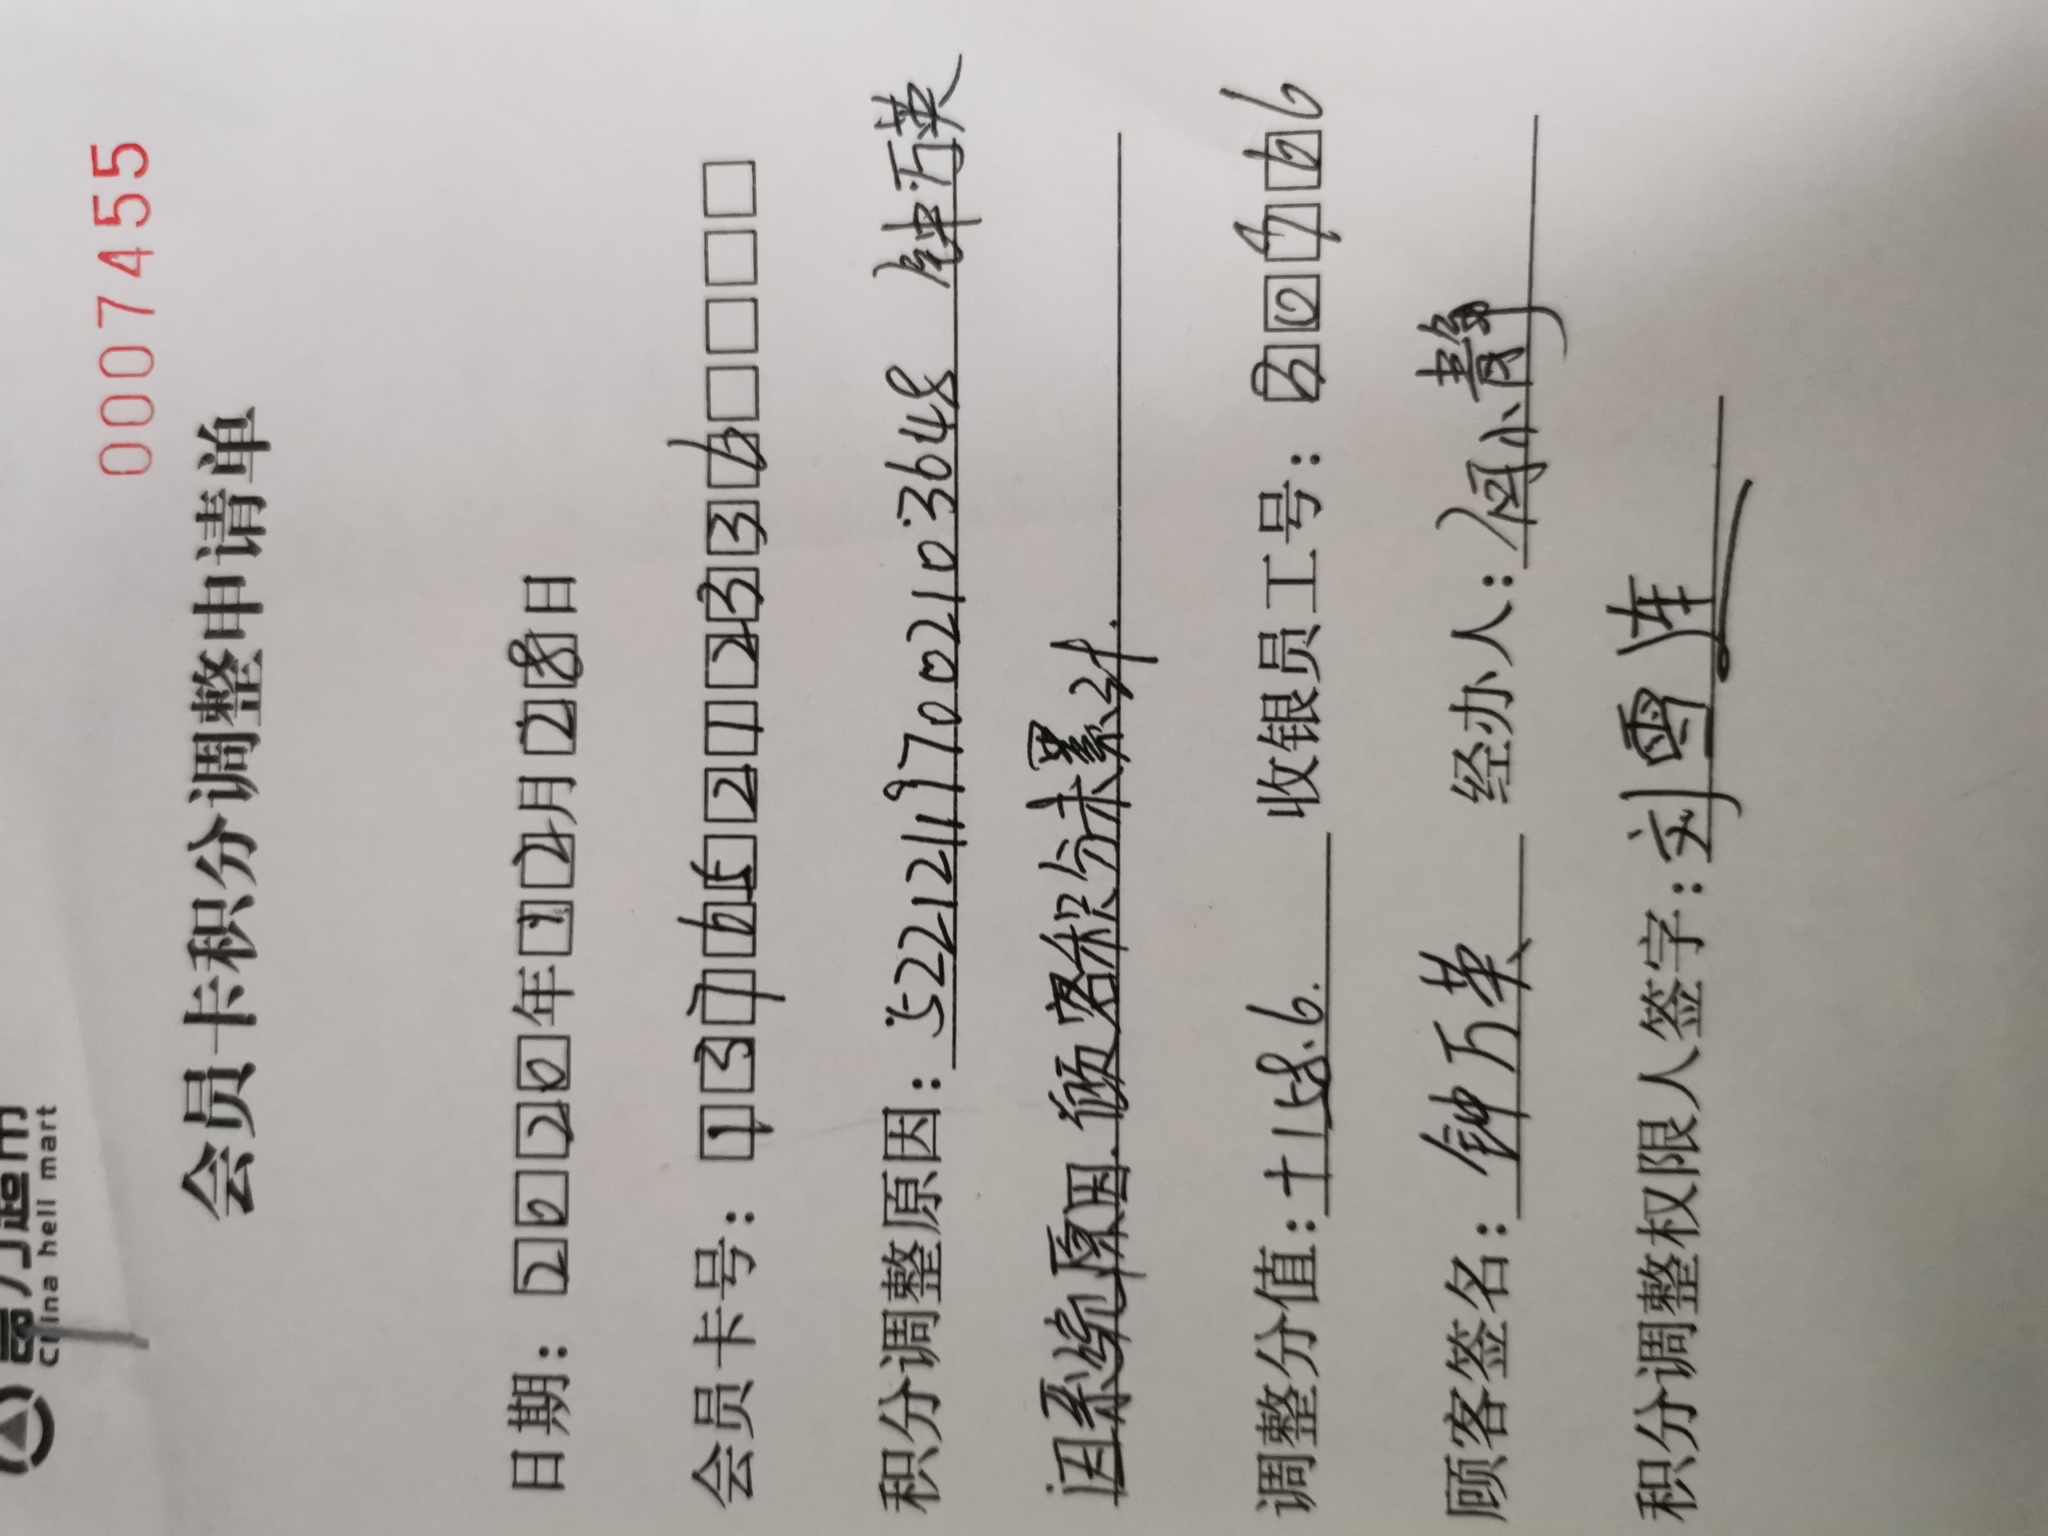 China hell mart
0007455
会员卡积分调整申请单
日期：2020年12月28日
会员卡号：13765212336
积分调整原因：522121197002103648 钟万英
因系统原因.顾客积分未累计.
调整分值：+158.6. 收银员工号：80766
顾客签名：钟万英 经办人：何小静
积分调整权限人签字：刘雪连